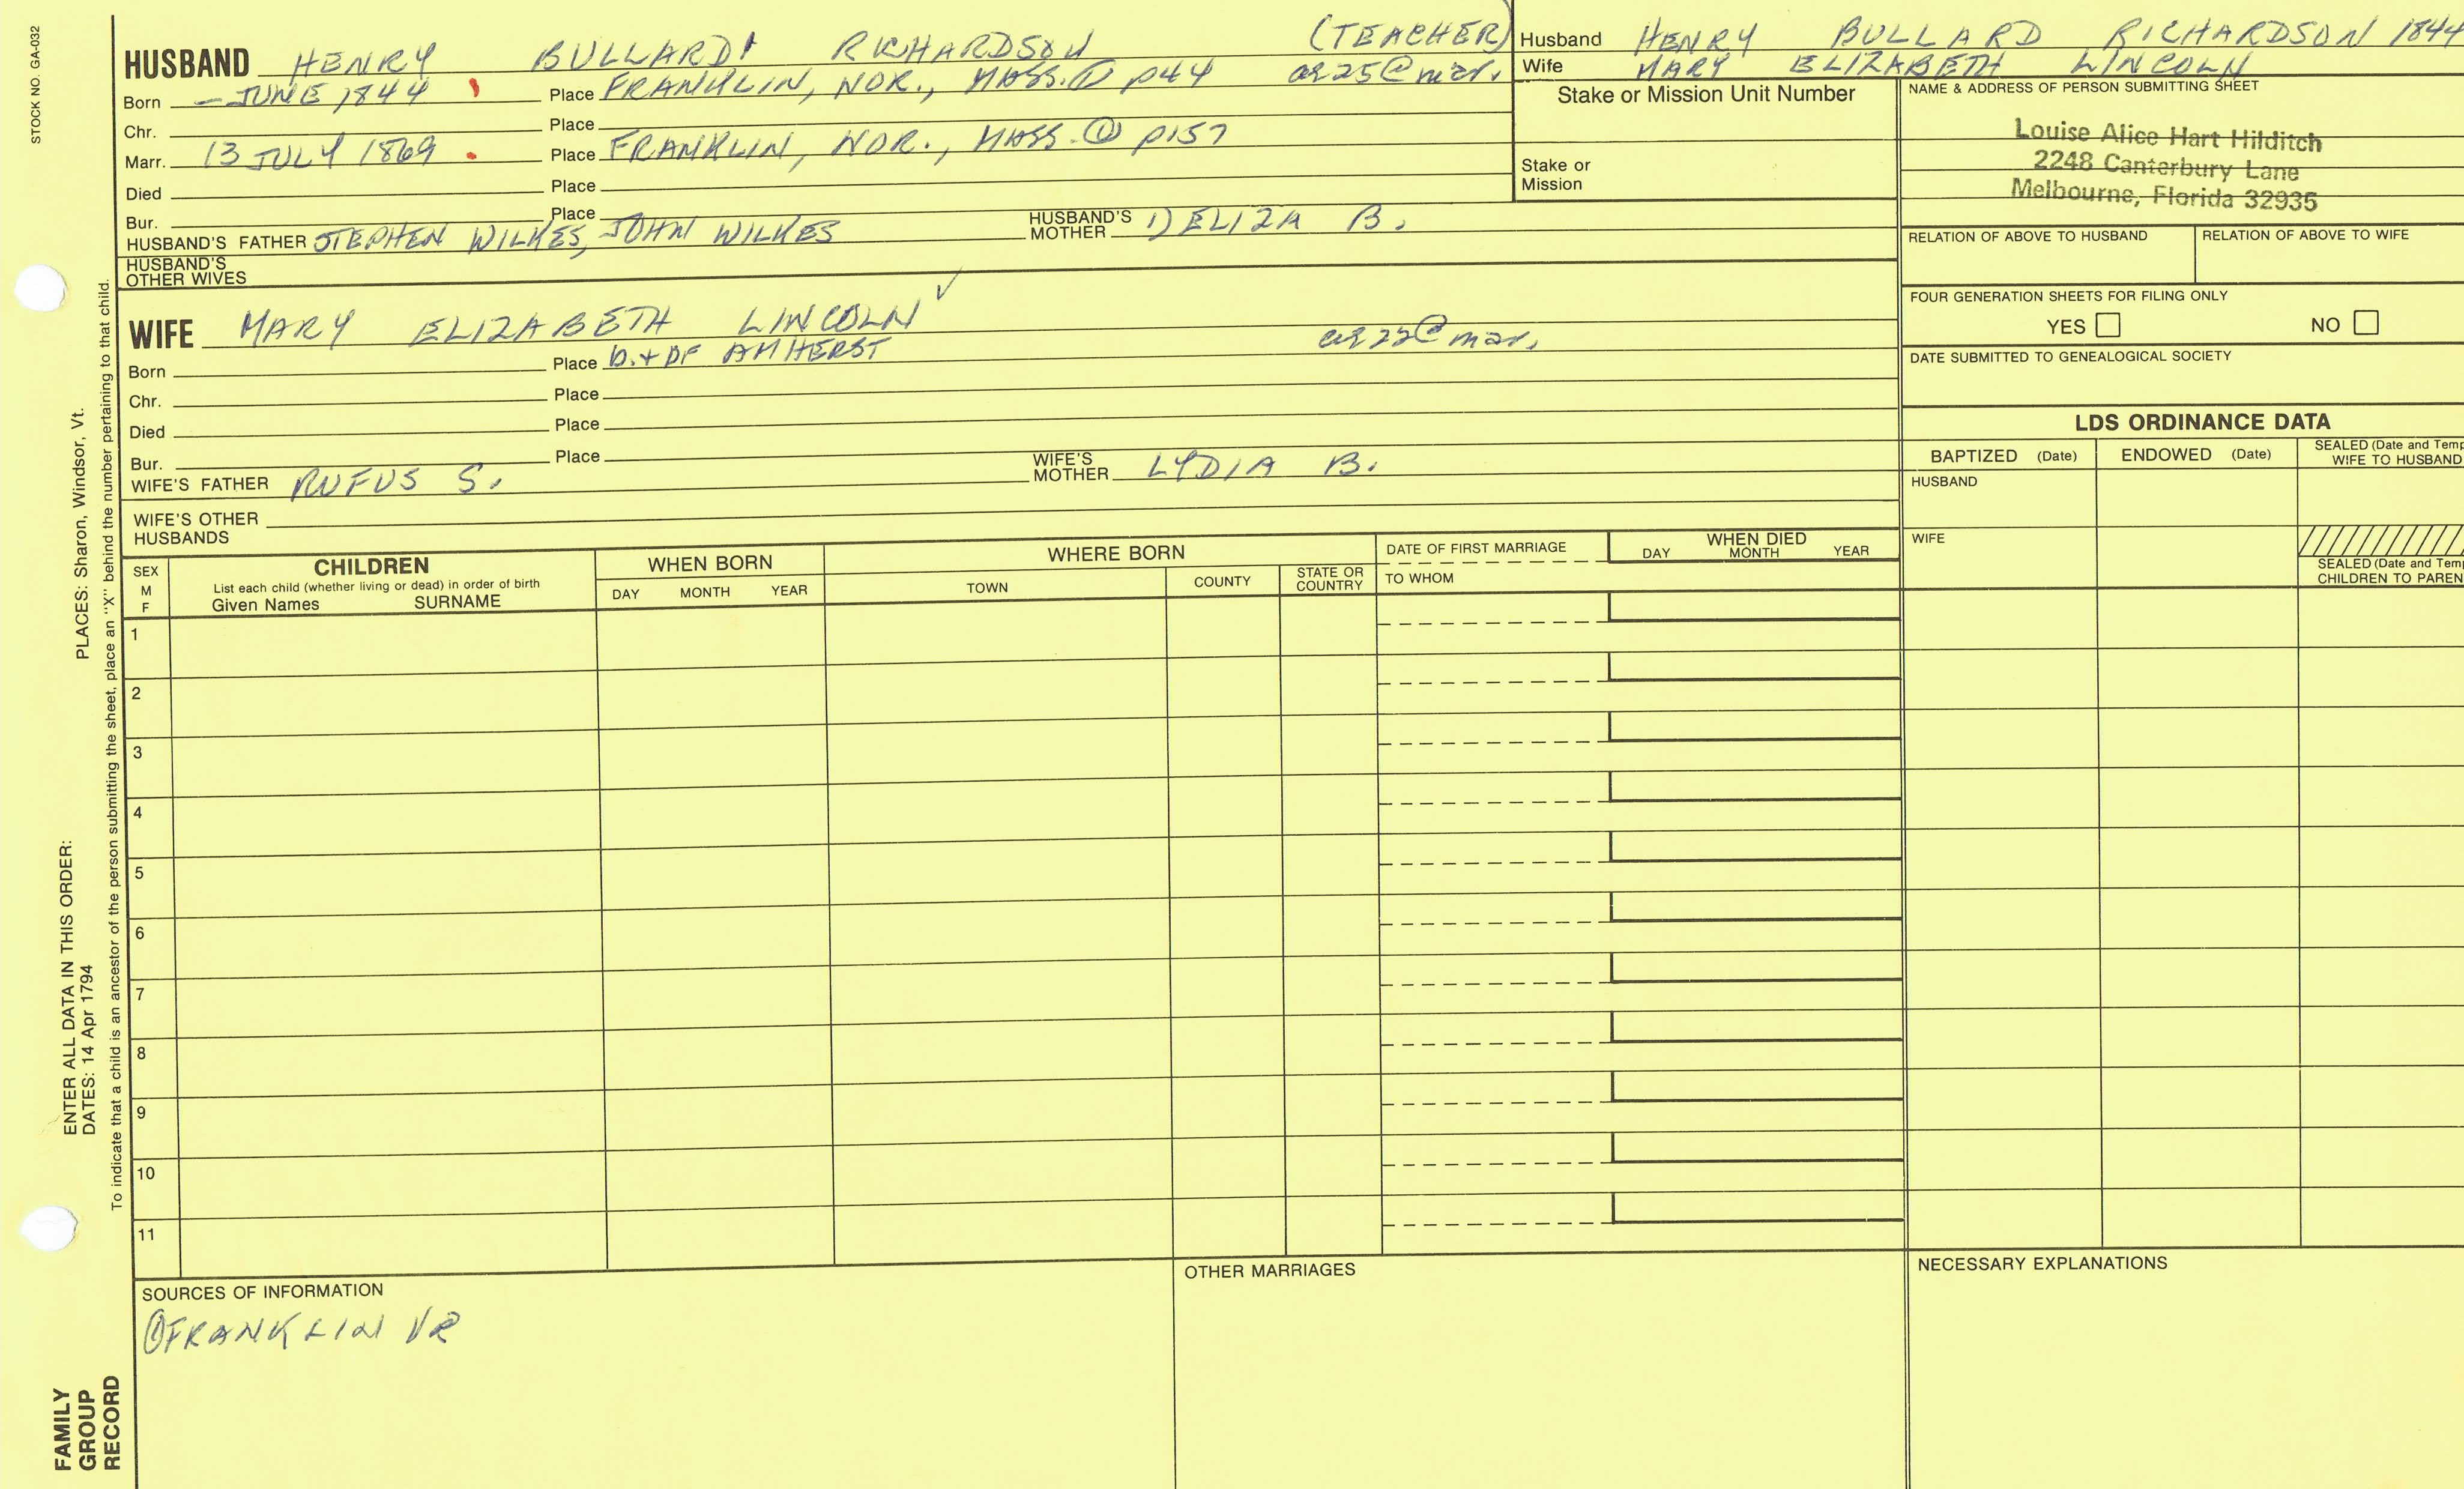 STOCK NO. GA-032
HUSBAND HENRY BULLARD RICHARDSON (TEACHER)
Born – JUNE 1844 Place FRANKLIN, NOR., MASS. ① p44 ag 25 @ mar.
Chr. Place
Marr. 13 JULY 1869 Place FRANKLIN, NOR., MASS. ① p157
Died Place
Bur. Place
HUSBAND'S FATHER STEPHEN WILKES, JOHN WILKES HUSBAND'S MOTHER 1) ELIZA B.
HUSBAND'S OTHER WIVES
Husband HENRY BULLARD RICHARDSON 1844
Wife MARY ELIZABETH LINCOLN
Stake or Mission Unit Number
Stake or
Mission
NAME & ADDRESS OF PERSON SUBMITTING SHEET
Louise Alice Hart Hilditch
2248 Canterbury Lane
Melbourne, Florida 32935
RELATION OF ABOVE TO HUSBAND RELATION OF ABOVE TO WIFE
FOUR GENERATION SHEETS FOR FILING ONLY
YES NO
DATE SUBMITTED TO GENEALOGICAL SOCIETY
WIFE MARY ELIZABETH LINCOLN ✓ ag 22 @ mar.
Born Place b. + OF AMHERST
Chr. Place
Died Place
Bur. Place
WIFE'S FATHER RUFUS S. WIFE'S MOTHER LYDIA B.
WIFE'S OTHER
HUSBANDS
LDS ORDINANCE DATA
BAPTIZED (Date) ENDOWED (Date) SEALED (Date and Temp
WIFE TO HUSBAND
HUSBAND
WIFE
SEALED (Date and Temp
CHILDREN TO PAREN
SEX
M
F
CHILDREN
List each child (whether living or dead) in order of birth
Given Names SURNAME
WHEN BORN
DAY MONTH YEAR
WHERE BORN
TOWN COUNTY STATE OR COUNTRY
DATE OF FIRST MARRIAGE
TO WHOM
WHEN DIED
DAY MONTH YEAR
1
2
3
4
5
6
7
8
9
10
11
SOURCES OF INFORMATION
① FRANKLIN VR
OTHER MARRIAGES
NECESSARY EXPLANATIONS
FAMILY
GROUP
RECORD
ENTER ALL DATA IN THIS ORDER:
DATES: 14 Apr 1794 PLACES: Sharon, Windsor, Vt.
To indicate that a child is an ancestor of the person submitting the sheet, place an "X" behind the number pertaining to that child.